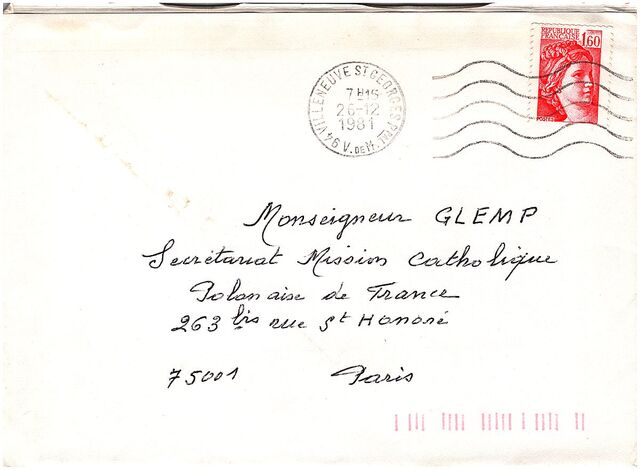 REPUBLIQUE
FRANÇAISE 1,60
94 VILLENEUVE ST GEORGES Pal V. DE M.
7H15
26-12
1981
Monseigneur GLEMP
Secrétariat Mission Catholique
Polonaise de France
263 bis rue St Honoré
75001 Paris